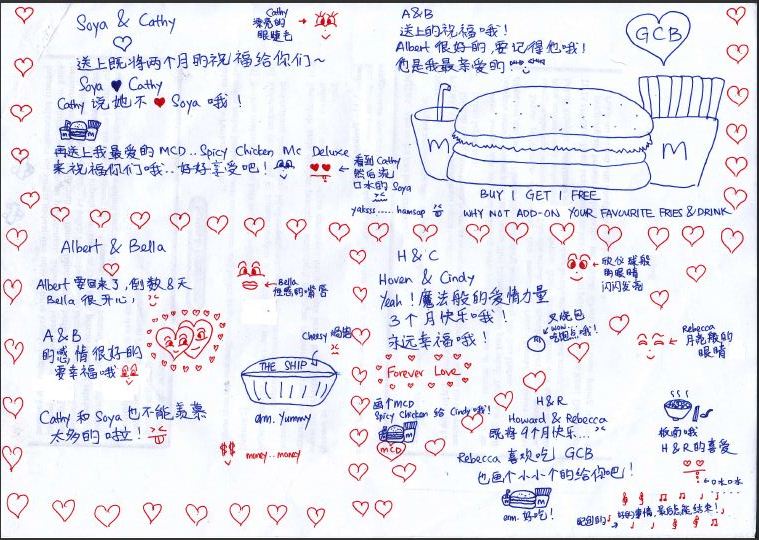 Soya & Cathy
送上既将两个月的祝福给你们~
Soya ♥ Cathy
Cathy 说她不 ♥ Soya 哦！
再送上我最爱的 MCD.. Spicy Chicken Mc Deluxe
来祝福你们哦.. 好好享受吧！
Cathy
漂亮的
眼睫毛
看到 Cathy
然后流
口水的 Soya
yaksss...... hamsap
A&B
送上的祝福哦！
Albert 很好的，要记得他哦！
也是我最亲爱的！
GCB
M
M
BUY 1 GET 1 FREE
WHY NOT ADD-ON YOUR FAVOURITE FRIES & DRINK
Albert & Bella
Albert 要回来了，倒数8天
Bella 很开心，
Bella
性感的嘴唇
A&B
的感情很好的
要幸福哦
Cheesy
THE SHIP
am. Yummy
Cathy 和 Soya 也不能羡慕
太多的啦！
$$
money... money
H & C
Hoven & Cindy
Yeah！魔法般的爱情力量
3个月快乐哦！
永远幸福哦！
Forever Love
的眼睛
闪闪发亮
叉烧包
wow
Rebecca
月亮般的
眼睛
画个 MCD
Spicy Chicken 给 Cindy 哦！
MCD
H&R
Howard & Rebecca
既将9个月快乐...
Rebecca 喜欢吃 GCB
也画个小小个的给你吧！
am. 好吃！
板面哦
H&R的喜爱
口水口水